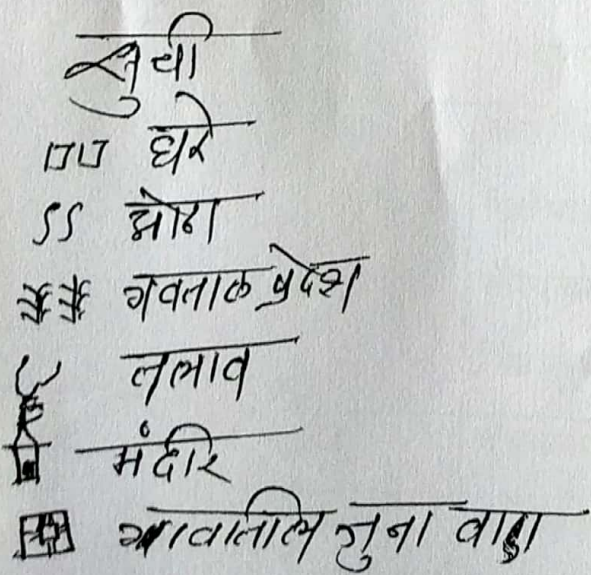 सुची
घरे
ओढा
गवताळ प्रदेश
तलाव
मंदीर
गावातील जुना वाडा